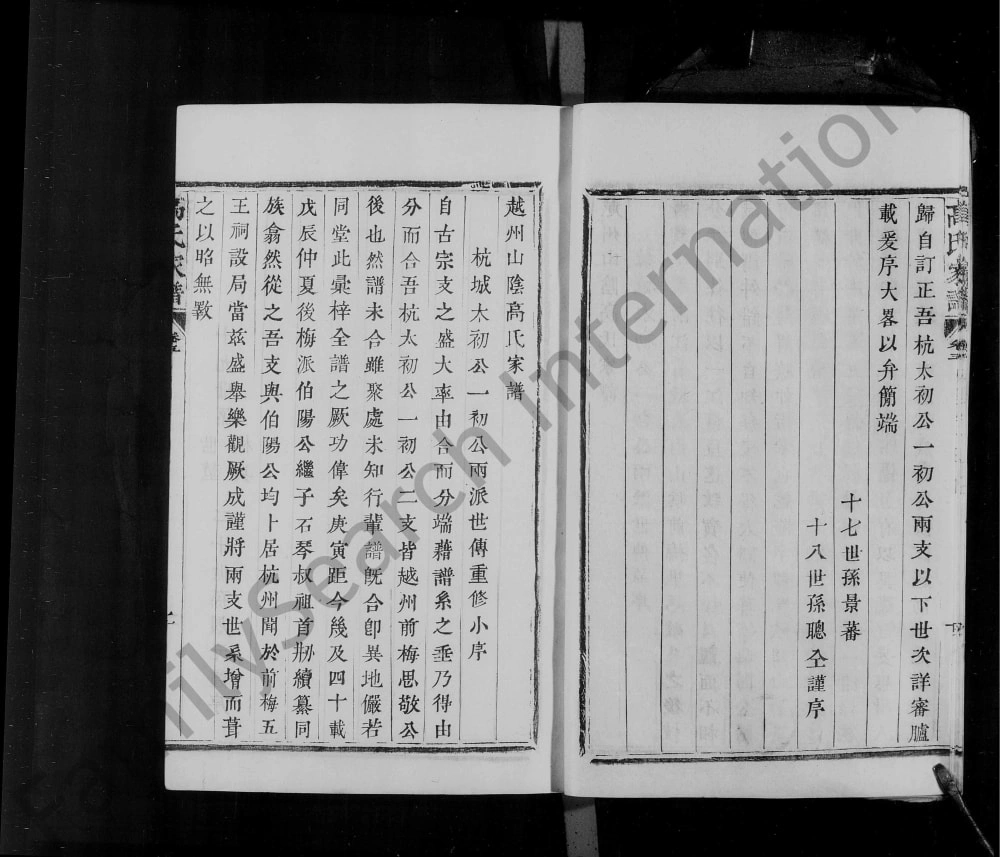 歸自訂正吾杭太初公一初公兩支以下世次詳審臚
載爰序大畧以弁簡端
十七世孫景蕃
十八世孫聰仝謹序
高氏家譜
越州山陰高氏家譜
杭城太初公一初公兩派世傳重修小序
自古宗支之盛大率由合而分端藉譜系之垂乃得由
分而合吾杭太初公一初公二支皆越州前梅思敬公
後也然譜未合雖聚處未知行輩譜旣合卽異地儼若
同堂此彙梓全譜之厥功偉矣庚寅距今幾及四十載
戊辰仲夏後梅派伯陽公繼子石琴叔祖首剙續纂同
族翕然從之吾支與伯陽公均卜居杭州聞於前梅五
王祠設局當兹盛舉樂觀厥成謹將兩支世系增而葺
之以昭無斁
高氏家譜
FamilySearch International